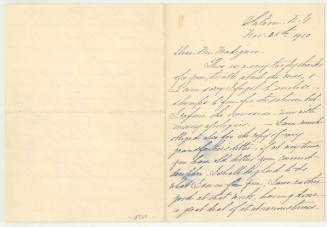 Salem, N.Y.
Nov. 26th 1910
Dear Mr. Madigan
This is a very tardy thanks
for your trouble about the
I am sorry I forgot to enclose
stamps to you for the return but
I enclose the same now with
many apologies. I am much
obliged also for the copy of my
grandfather's letter. If at any time
you have old letters you cannot
I shall be glad to do
what I can for you. I am rather
good at that work, having done
a great deal of it at various times.